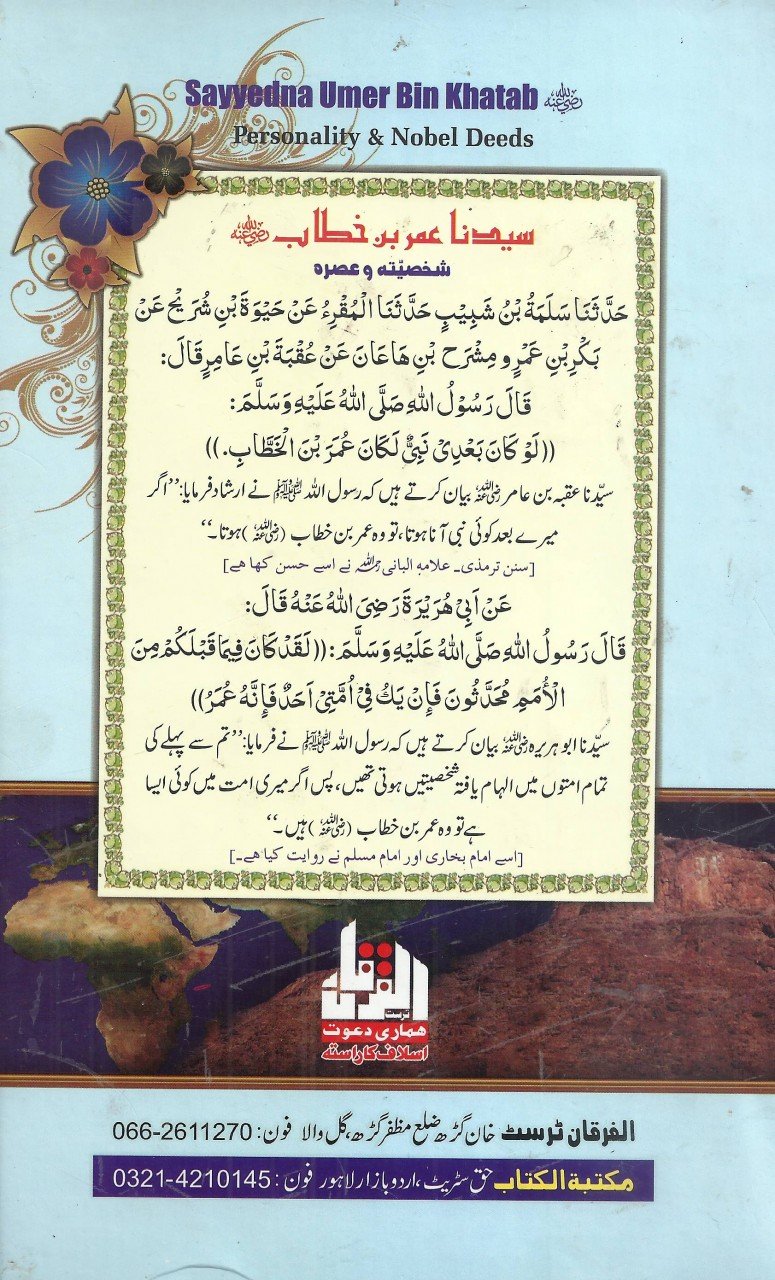 Sayyedna Umer Bin Khatab رضي الله عنه
Personality & Nobel Deeds
سیدنا عمر بن خطاب رضي الله عنه
شخصیّته و عصره
حَدَّثَنَا سَلَمَةُ بْنُ شَبِيْبٍ حَدَّثَنَا الْمُقْرِءُ عَنْ حَيْوَةَ بْنِ شُرَيْحٍ عَنْ
بَكْرِ بْنِ عَمْرٍ و مِشْرَح بْنِ هَاعَان عَنْ عُقْبَةَ بْنِ عَامِرٍ قَالَ:
قَالَ رَسُوْلُ اللهِ صَلَّى اللهُ عَلَيْهِ وَسَلَّمَ:
((لَوْ كَانَ بَعْدِىْ نَبِىٌّ لَكَانَ عُمَرَ بْنَ الْخَطَّابِ.))
سیّدنا عقبہ بن عامر رضي الله عنه بیان کرتے ہیں کہ رسول اللہ ﷺ نے ارشاد فرمایا: ’’اگر
میرے بعد کوئی نبی آنا ہوتا، تو وہ عمر بن خطاب (رضي الله عنه) ہوتا۔‘‘
[سنن ترمذی۔ علامہ البانی رحمہ اللہ نے اسے حسن کہا ہے]
عَنْ اَبِىْ هُرَيْرَةَ رَضِىَ اللهُ عَنْهُ قَالَ:
قَالَ رَسُوْلُ اللهِ صَلَّى اللهُ عَلَيْهِ وَسَلَّمَ: ((لَقَدْ كَانَ فِيْمَا قَبْلَكُمْ مِنَ
الْأُمَمِ مُحَدَّثُونَ فَإِنْ يَكُ فِىْ اُمَّتِىْ اَحَدٌ فَإِنَّهُ عُمَرُ))
سیّدنا ابو ہریرہ رضي الله عنه بیان کرتے ہیں کہ رسول اللہ ﷺ نے فرمایا: ’’تم سے پہلے کی
تمام امتوں میں الہام یافتہ شخصیتیں ہوتی تھیں، پس اگر میری امت میں کوئی ایسا
ہے تو وہ عمر بن خطاب (رضي الله عنه) ہیں۔‘‘
[اسے امام بخاری اور امام مسلم نے روایت کیا ہے۔]
الفرقان
ٹرسٹ
ھماری دعوت
اسلاف کا راستہ
الفرقان ٹرسٹ خان گڑھ ضلع مظفر گڑھ، گل والا فون: 066-2611270
مکتبة الکتاب حق سٹریٹ، اردو بازار لاہور فون: 0321-4210145